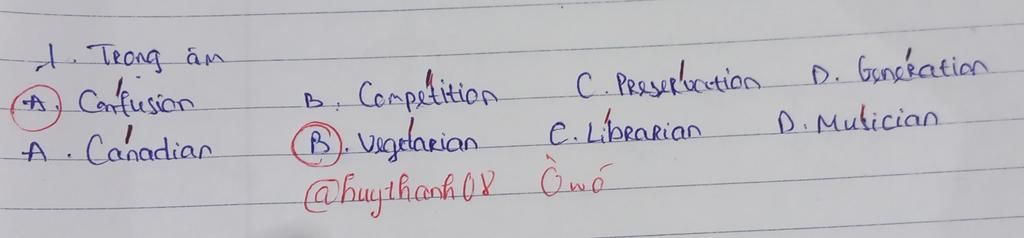 1. Trọng âm
A. Confusion B. Competition C. Preservation D. Generation
A. Canadian B. Vegetarian C. Librarian D. Musician
@huythanh08 Òwó